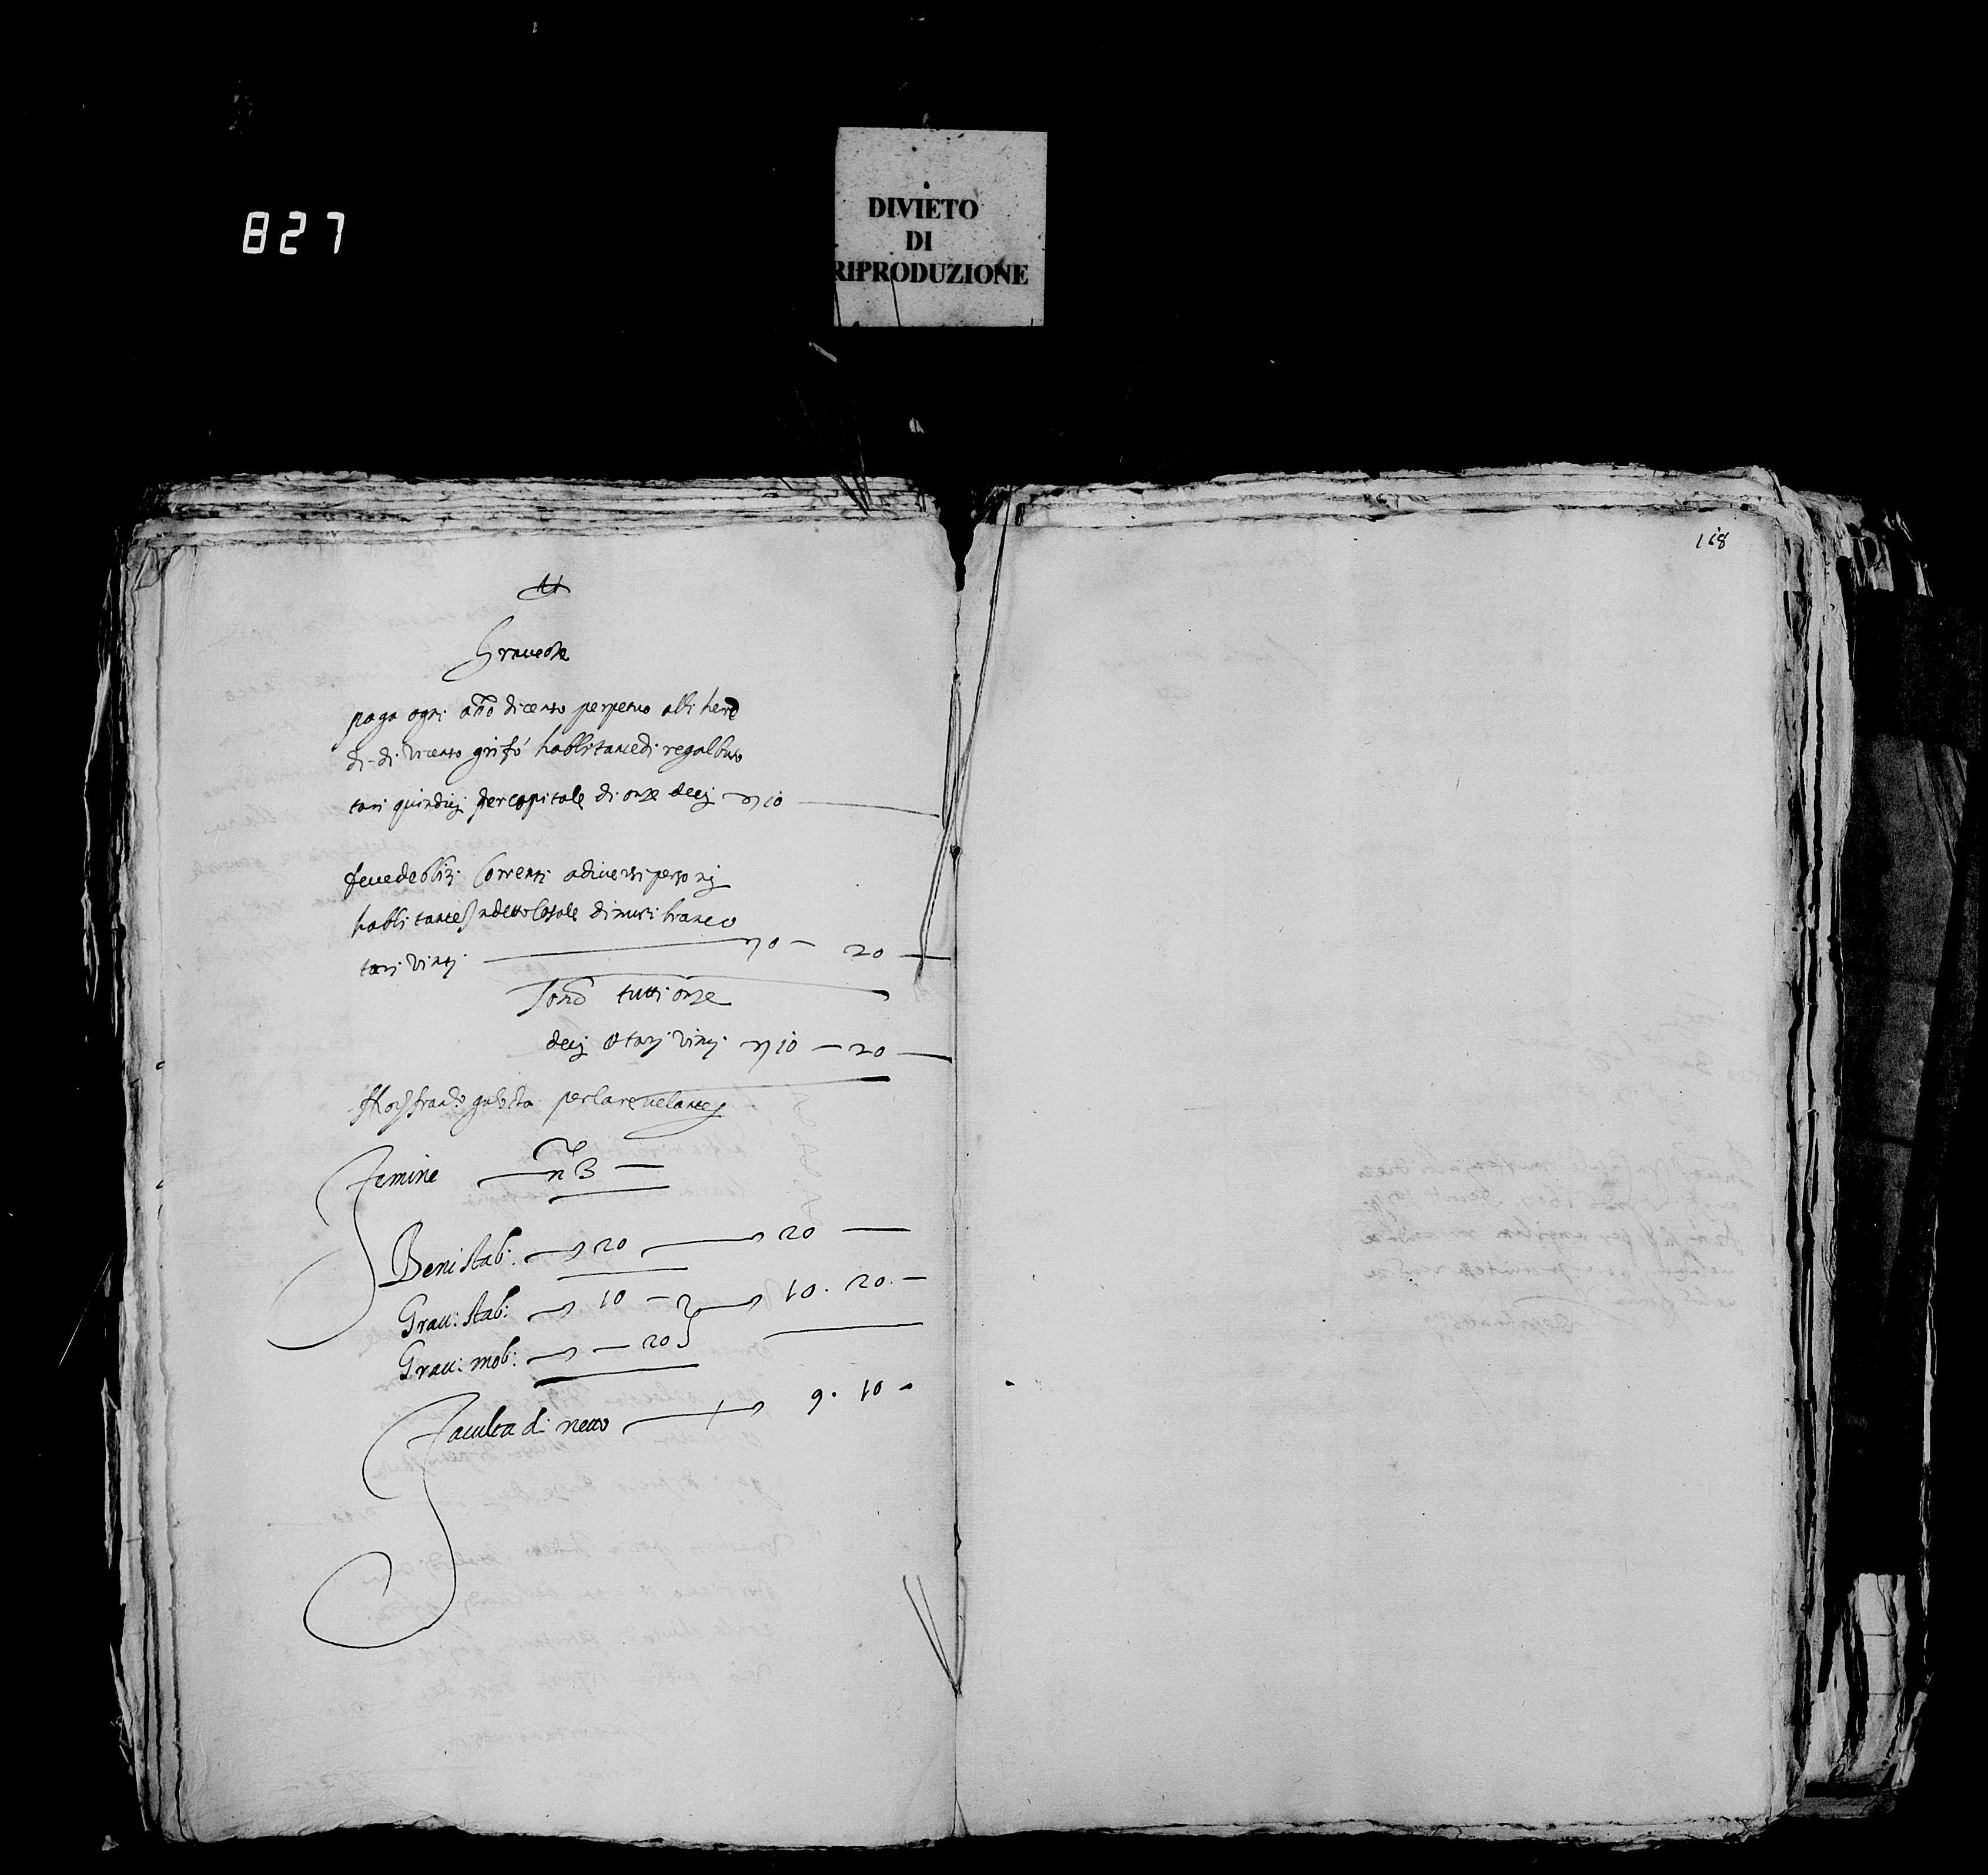 827
DIVIETO
DI
RIPRODUZIONE
168
Gravezze
paga ogni año di censo perpetuo alli here
di di Vicenso grifo habbitante di regalbuto
tari quindici per capitale di onze deci 10
deve debbiti correnti a diversi personi
habbitante in detto Casale
tari vinti 0 - 20
Sono tutti onze
deci et tari vinti 10 - 20
per la revelante
Femine n 3
Beni stab: 20 20
Grav: stab: 10 - 10. 20. -
Grav: mob: - 20
Faculta di netto 9. 10 -